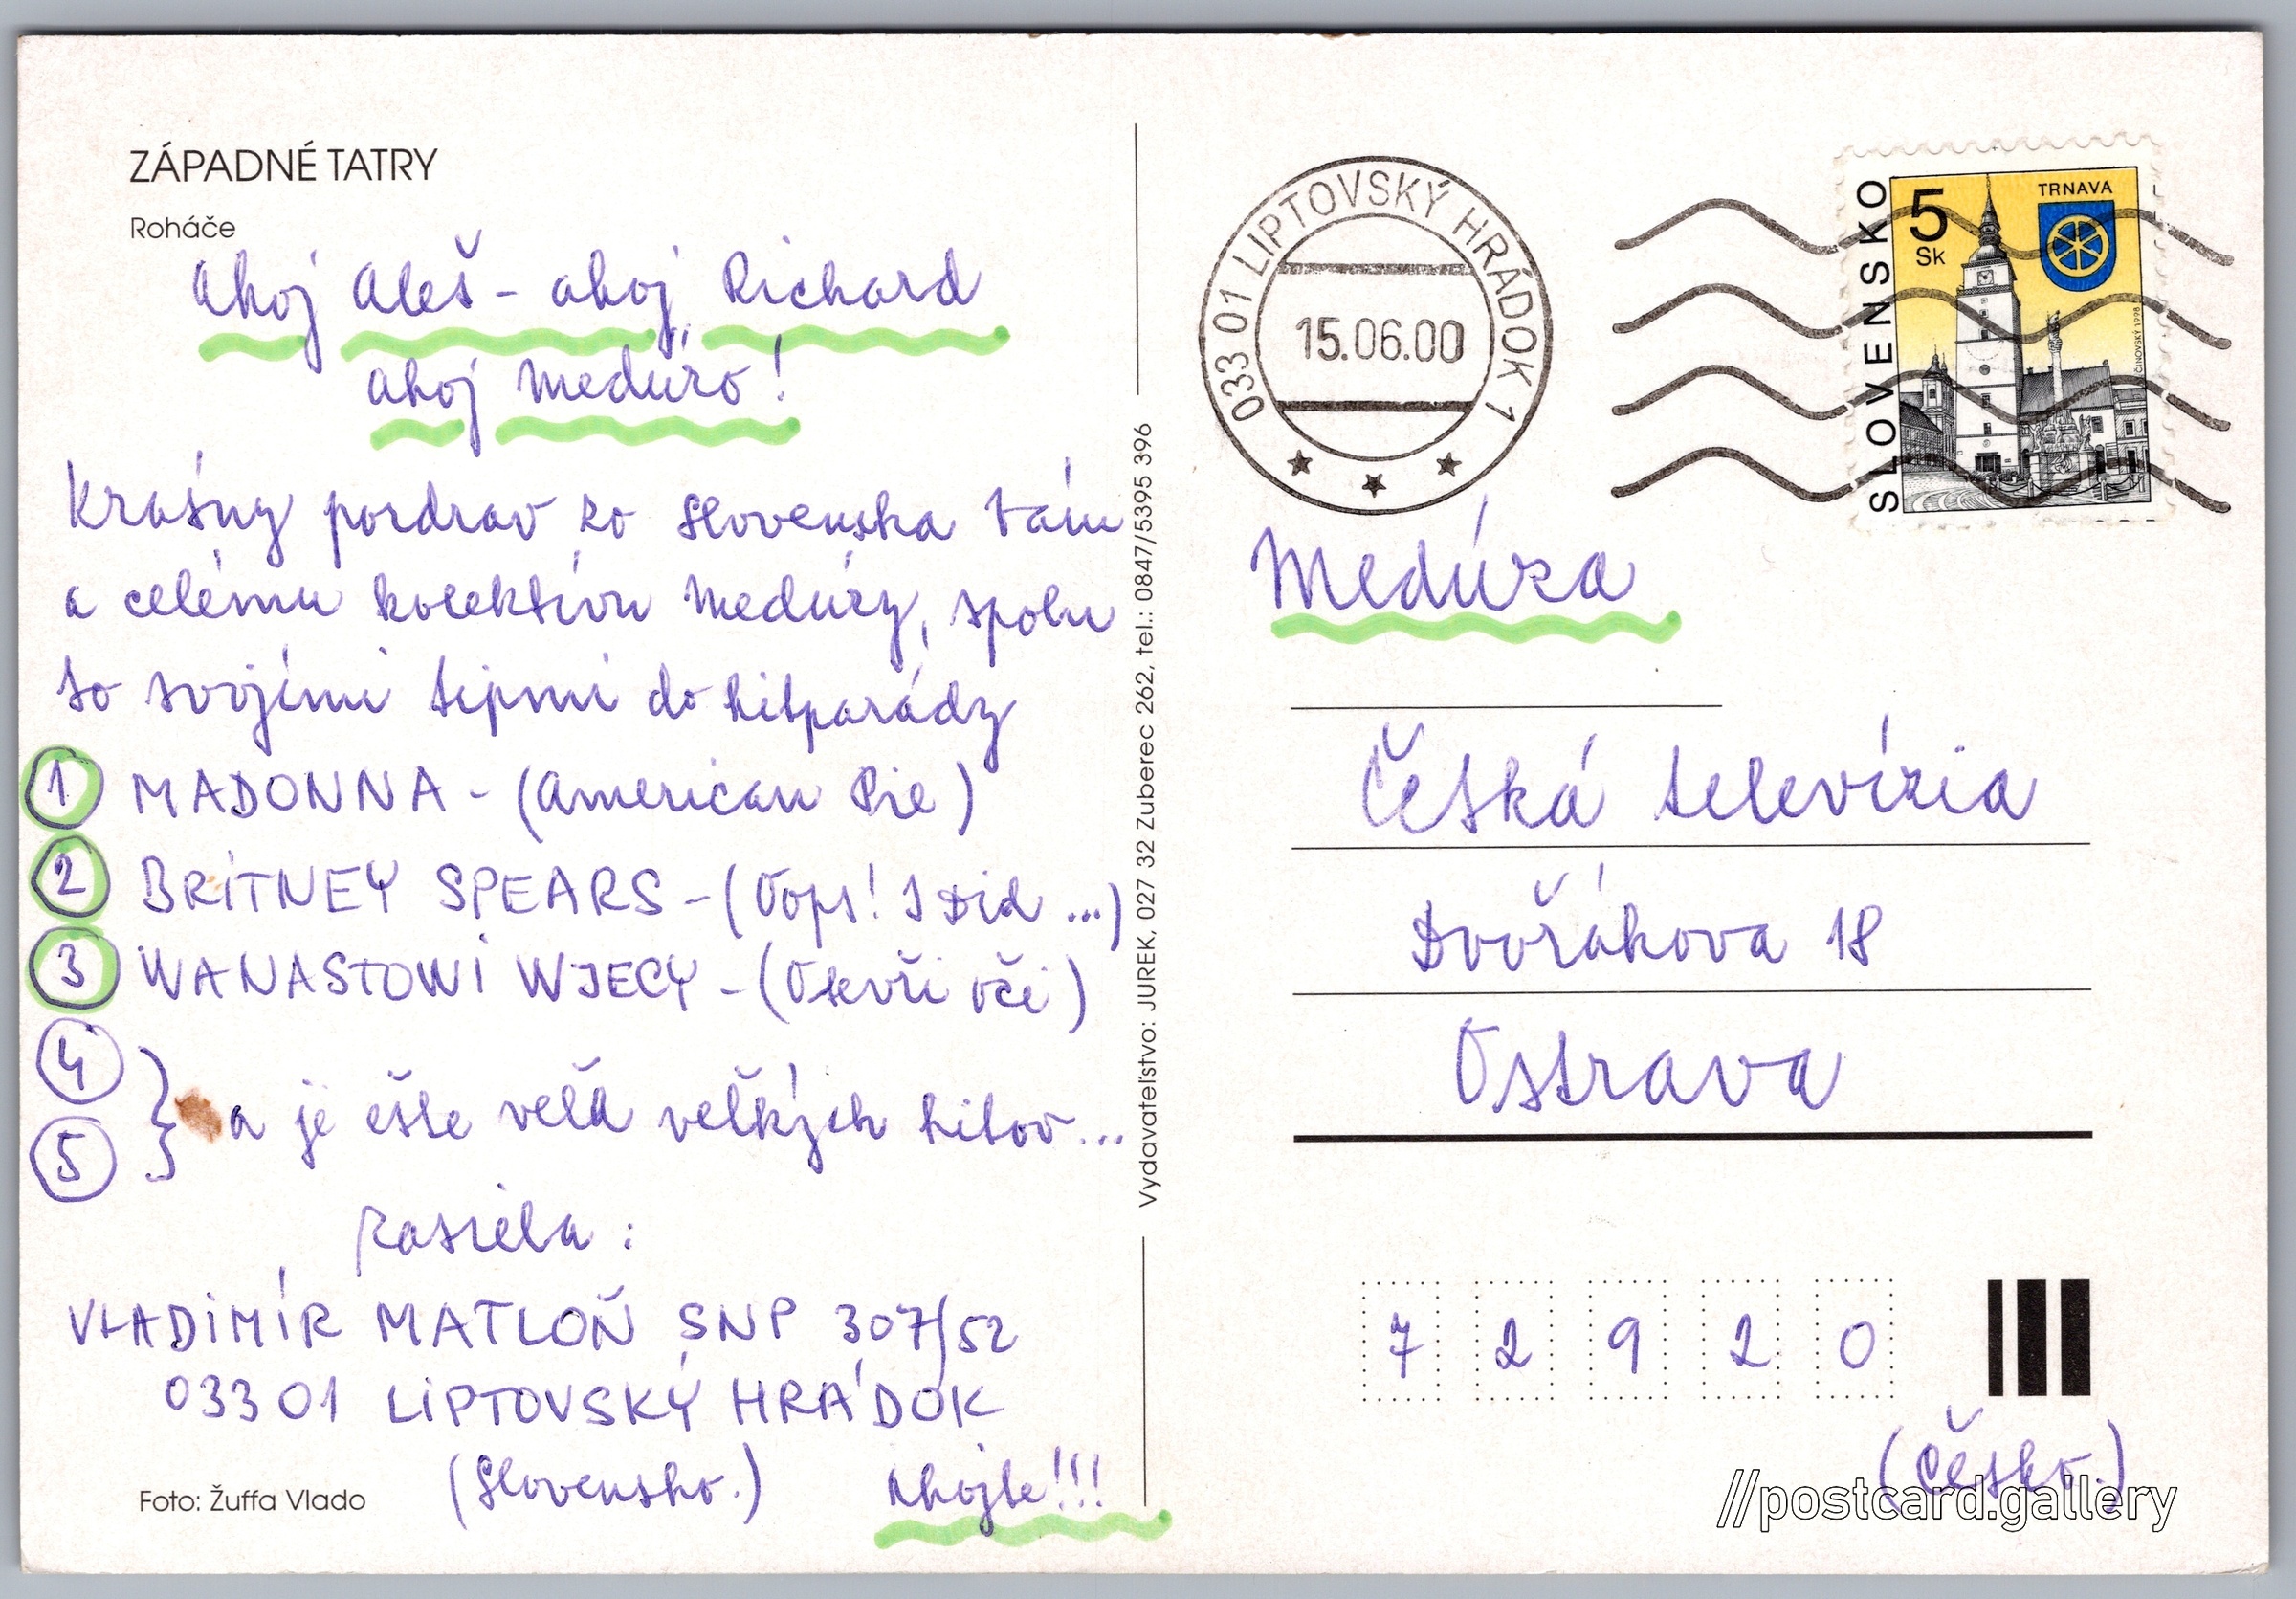 ZÁPADNÉ TATRY
Roháče
Ahoj Aleš - ahoj Richard
ahoj Medúzo!
Krásny pozdrav zo Slovenska Vám
a celému kolektívu Medúzy, spolu
so svojími tipmi do hitparády
1 MADONNA - (American Pie)
2 BRITNEY SPEARS - (Oops! I Did ...)
3 WANASTOWI WJECY - (Otevři oči)
4
5 } a je ešte veľa veľkých hitov...
zasiela:
VLADIMÍR MATLOŇ SNP 307/52
033 01 LIPTOVSKÝ HRÁDOK
(Slovensko.) Ahojte!!!
Foto: Žuffa Vlado
Vydavateľstvo: JUREK, 027 32 Zuberec 262, tel.: 0847/5395 396
033 01 LIPTOVSKÝ HRÁDOK 1
15.06.00
SLOVENSKO
5 Sk
TRNAVA
ČINOVSKÝ 1998
Medúza
Česká televízia
Dvořákova 18
Ostrava
7 2 9 2 0
(Česko.)
//postcard.gallery